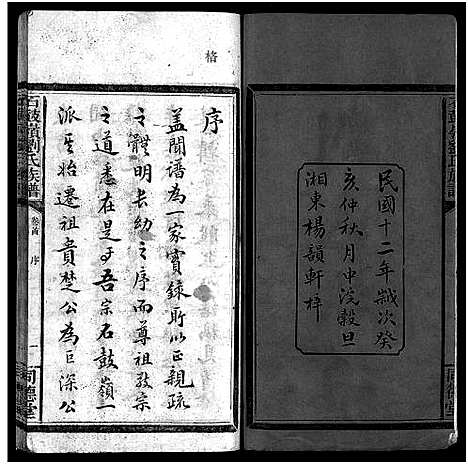 民國十二年歲次癸
亥仲秋月中浣穀旦
湘東楊韻軒梓
格
序
蓋聞譜為一家實錄所以正親疏
之體明長幼之序而尊祖敬宗
之道悉在是乎吾宗石鼓嶺一
派其始遷祖貴楚公為巨深公
石鼓嶺劉氏族譜
卷首
序
一
同德堂